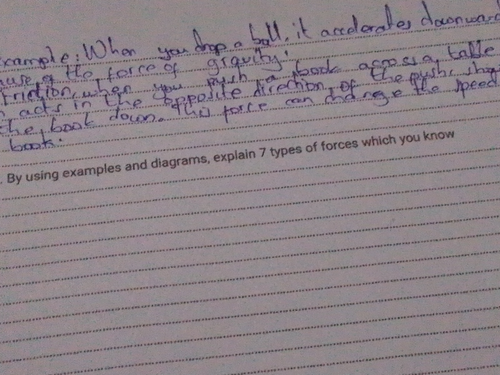 Example: When you drop a ball, it accelerates downward
of the force of gravity.
friction, when you push a book across a table
acts in the opposite direction of the push,
the book down. This force can change the speed
book.
. By using examples and diagrams, explain 7 types of forces which you know